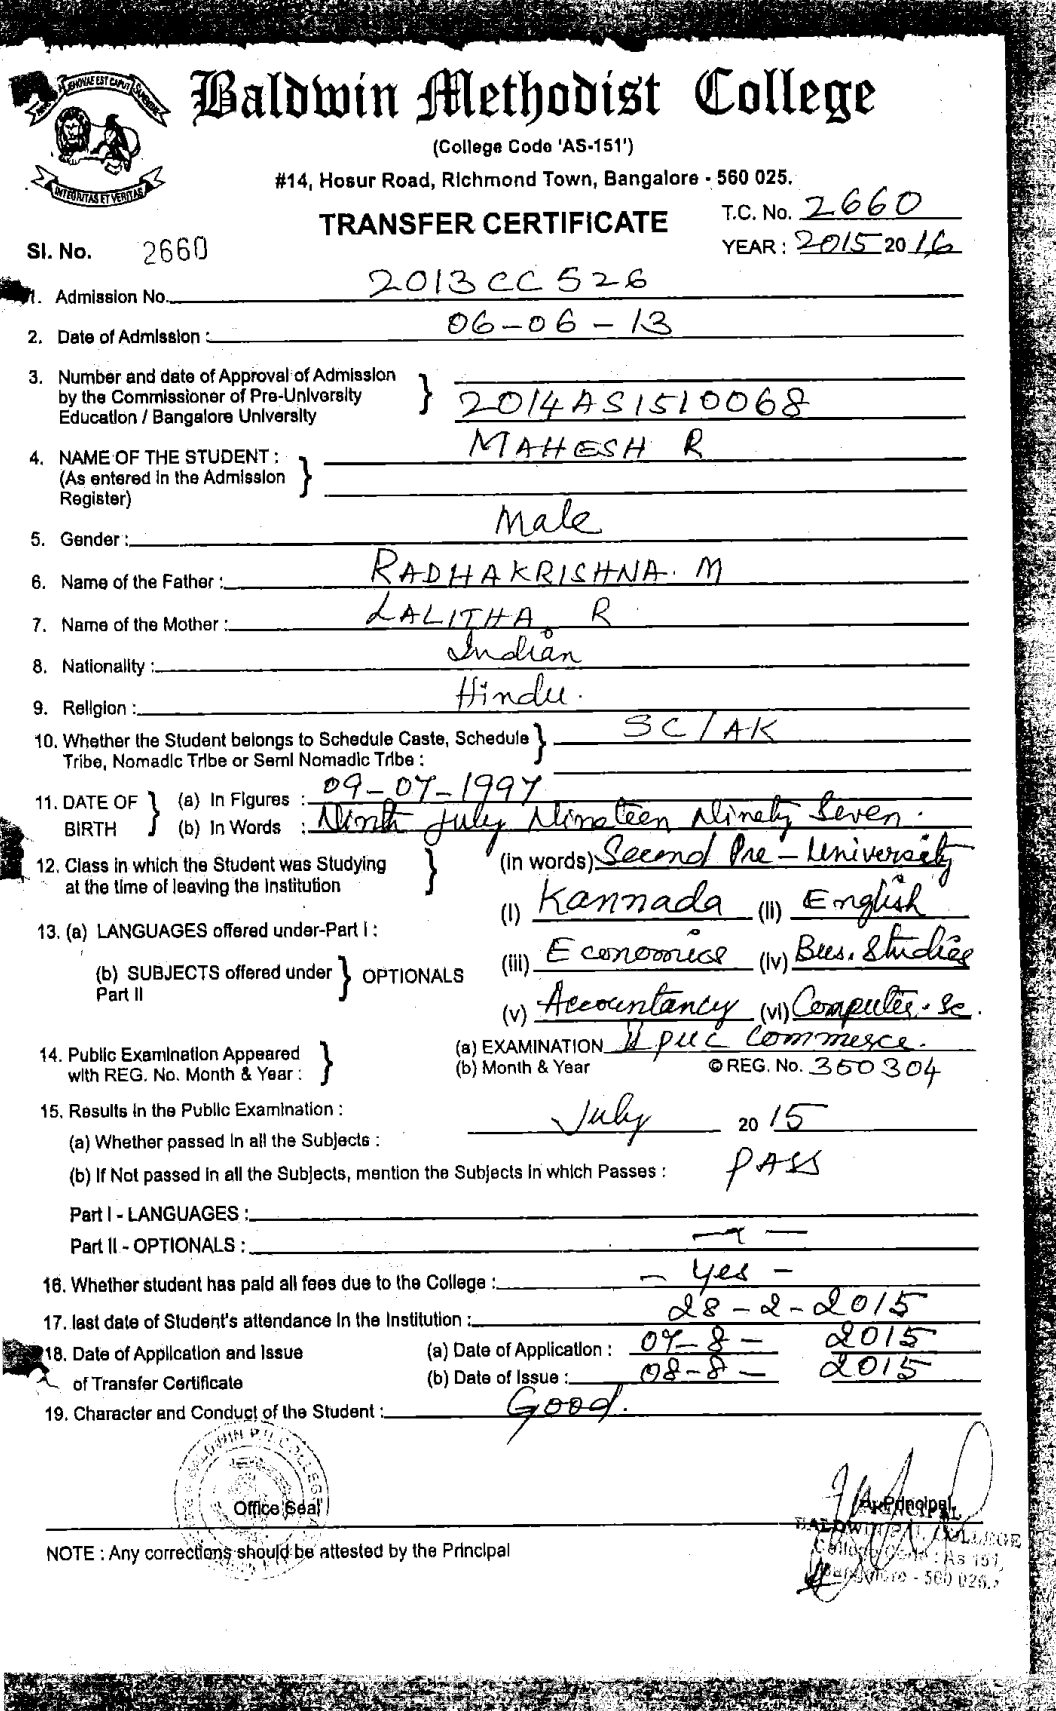 JEHOVAE EST CAPUT
INTEGRITAS ET VERITAS
Baldwin Methodist College
(College Code 'AS-151')
#14, Hosur Road, Richmond Town, Bangalore - 560 025.
TRANSFER CERTIFICATE
T.C. No. 2660
Sl. No. 2660
YEAR : 2015 20 16
1. Admission No. 2013CC526
2. Date of Admission : 06-06-13
3. Number and date of Approval of Admission
by the Commissioner of Pre-University
Education / Bangalore University
2014AS1510068
4. NAME OF THE STUDENT : MAHESH R
(As entered in the Admission
Register)
5. Gender : Male
6. Name of the Father : RADHAKRISHNA. M
7. Name of the Mother : LALITHA R
8. Nationality : Indian
9. Religion : Hindu.
10. Whether the Student belongs to Schedule Caste, Schedule
Tribe, Nomadic Tribe or Semi Nomadic Tribe :
SC/AK
11. DATE OF BIRTH (a) In Figures : 09-07-1997
(b) In Words : Ninth July Nineteen Ninety Seven.
12. Class in which the Student was Studying
at the time of leaving the Institution
(in words) Second Pre-University
13. (a) LANGUAGES offered under-Part I :
(i) Kannada (ii) English
(b) SUBJECTS offered under
Part II
OPTIONALS
(iii) Economics (iv) Bus. Studies
(v) Accountancy (vi) Computer. Sc.
14. Public Examination Appeared
with REG. No. Month & Year :
(a) EXAMINATION II PUC Commerce.
(b) Month & Year © REG. No. 350304
15. Results in the Public Examination :
July 2015
(a) Whether passed in all the Subjects :
(b) If Not passed in all the Subjects, mention the Subjects in which Passes : PASS
Part I - LANGUAGES :
Part II - OPTIONALS :
16. Whether student has paid all fees due to the College : - Yes -
17. last date of Student's attendance in the Institution : 28-2-2015
18. Date of Application and Issue
of Transfer Certificate
(a) Date of Application : 07-8- 2015
(b) Date of Issue : 08-8- 2015
19. Character and Conduct of the Student : Good.
BALDWIN P.U COLLEGE
Office Seal
Principal
PRINCIPAL
BALDWIN P.U. COLLEGE
College Code : As 151,
Bangalore - 560 025.
NOTE : Any corrections should be attested by the Principal